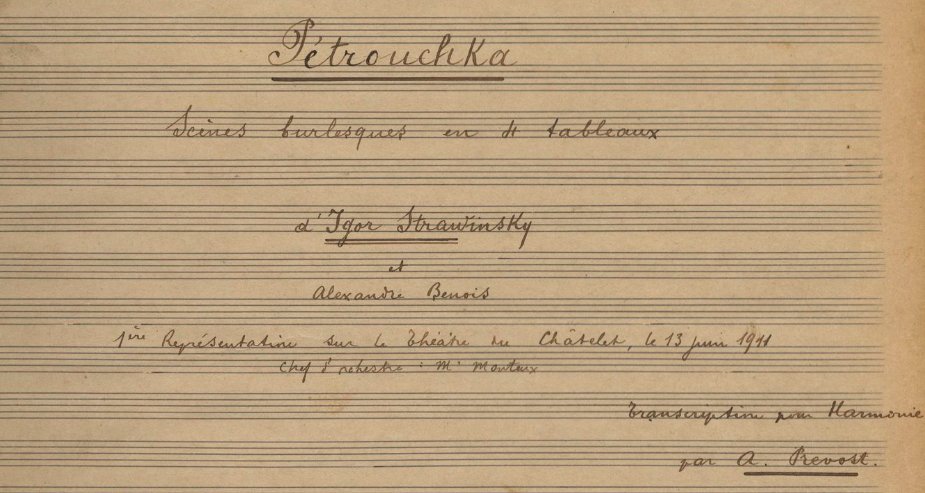 Pétrouchka
Scènes burlesques en 4 tableaux
d'Igor Strawinsky
et
Alexandre Benois
1ère Représentation sur le Théâtre du Châtelet, le 13 juin 1911
Chef d'orchestre : Mr Monteux
Transcription pour Harmonie
par A. Prevost.